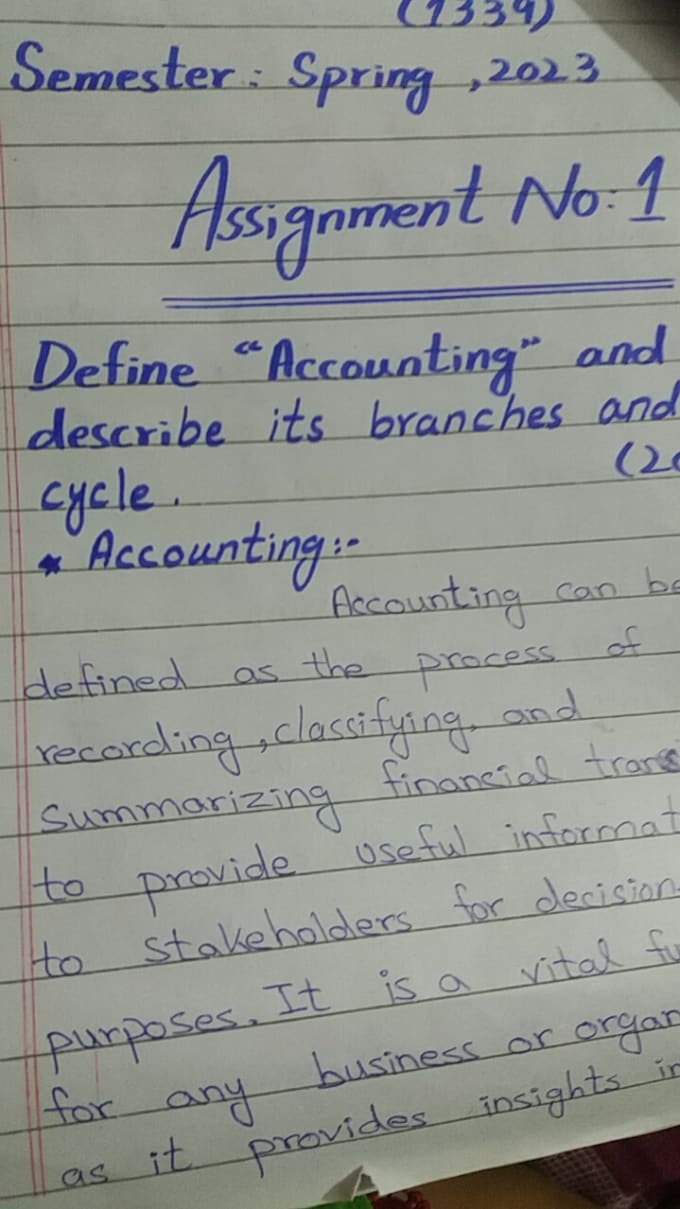 (1339)
Semester: Spring, 2023
Assignment No: 1
Define "Accounting" and
describe its branches and
cycle.
(20
* Accounting:-
Accounting can be
defined as the process of
recording, classifying, and
summarizing financial trans
to provide useful informat
to stakeholders for decision
purposes. It is a vital fu
for any business or organ
as it provides insights in